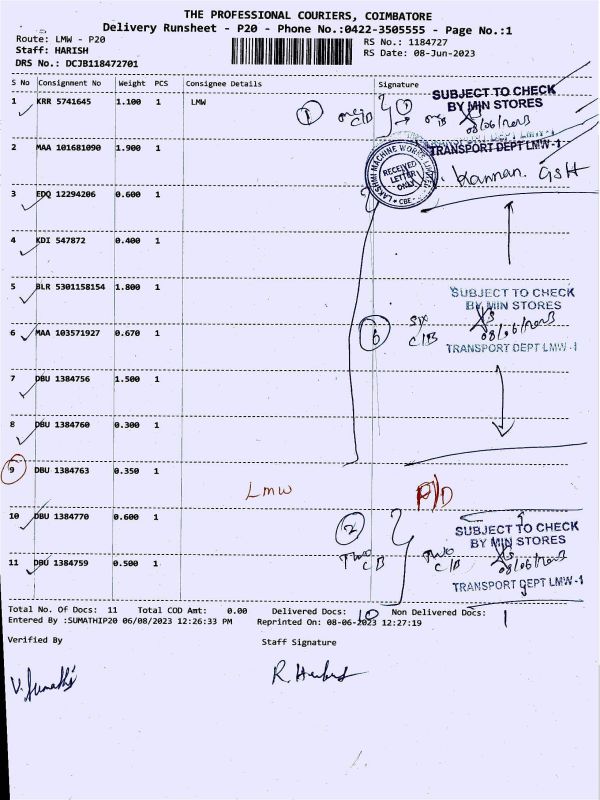 THE PROFESSIONAL COURIERS, COIMBATORE
Delivery Runsheet - P20 - Phone No.:0422-3505555 - Page No.:1
Route: LMW - P20
RS No.: 1184727
Staff: HARISH
RS Date: 08-Jun-2023
DRS No.: DCJB118472701
S No Consignment No Weight PCS Consignee Details Signature
1 KRR 5741645 1.100 1 LMW
1 one C/B 1 → one
SUBJECT TO CHECK
BY MIN STORES
08/06/2023
TRANSPORT DEPT LMW-1
2 MAA 101681090 1.900 1
LAKSHMI MACHINE WORKS LIMITED
RECEIVED
LETTER
ONLY
CBE
Kannan. GSH
3 EDQ 12294206 0.600 1
4 KDI 547872 0.400 1
5 BLR 5301158154 1.800 1
SUBJECT TO CHECK
BY MIN STORES
08/06/2023
TRANSPORT DEPT LMW-1
6 MAA 103571927 0.670 1
6 six
C/B
7 DBU 1384756 1.500 1
8 DBU 1384760 0.300 1
9 DBU 1384763 0.350 1
Lmw P/D
10 DBU 1384770 0.600 1
2
Two
C/B
Two
C/B
SUBJECT TO CHECK
BY MIN STORES
08/06/2023
TRANSPORT DEPT LMW-1
11 DBU 1384759 0.500 1
Total No. Of Docs: 11 Total COD Amt: 0.00 Delivered Docs: 10 Non Delivered Docs: 1
Entered By :SUMATHIP20 06/08/2023 12:26:33 PM Reprinted On: 08-06-2023 12:27:19
Verified By Staff Signature
V. Sumathi